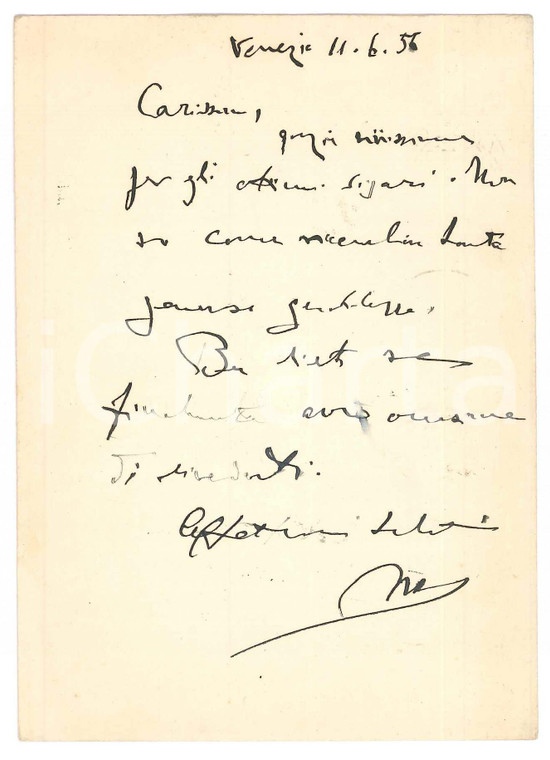 Venezia 11.6.56
Carissimo,
grazie vivissime
per gli ottimi sigari. Non
so come ricambiar tanta
generosa gentilezza.
Ben lieto se
finalmente avrò occasione
di rivederti.
Affettuosi saluti
iCharta